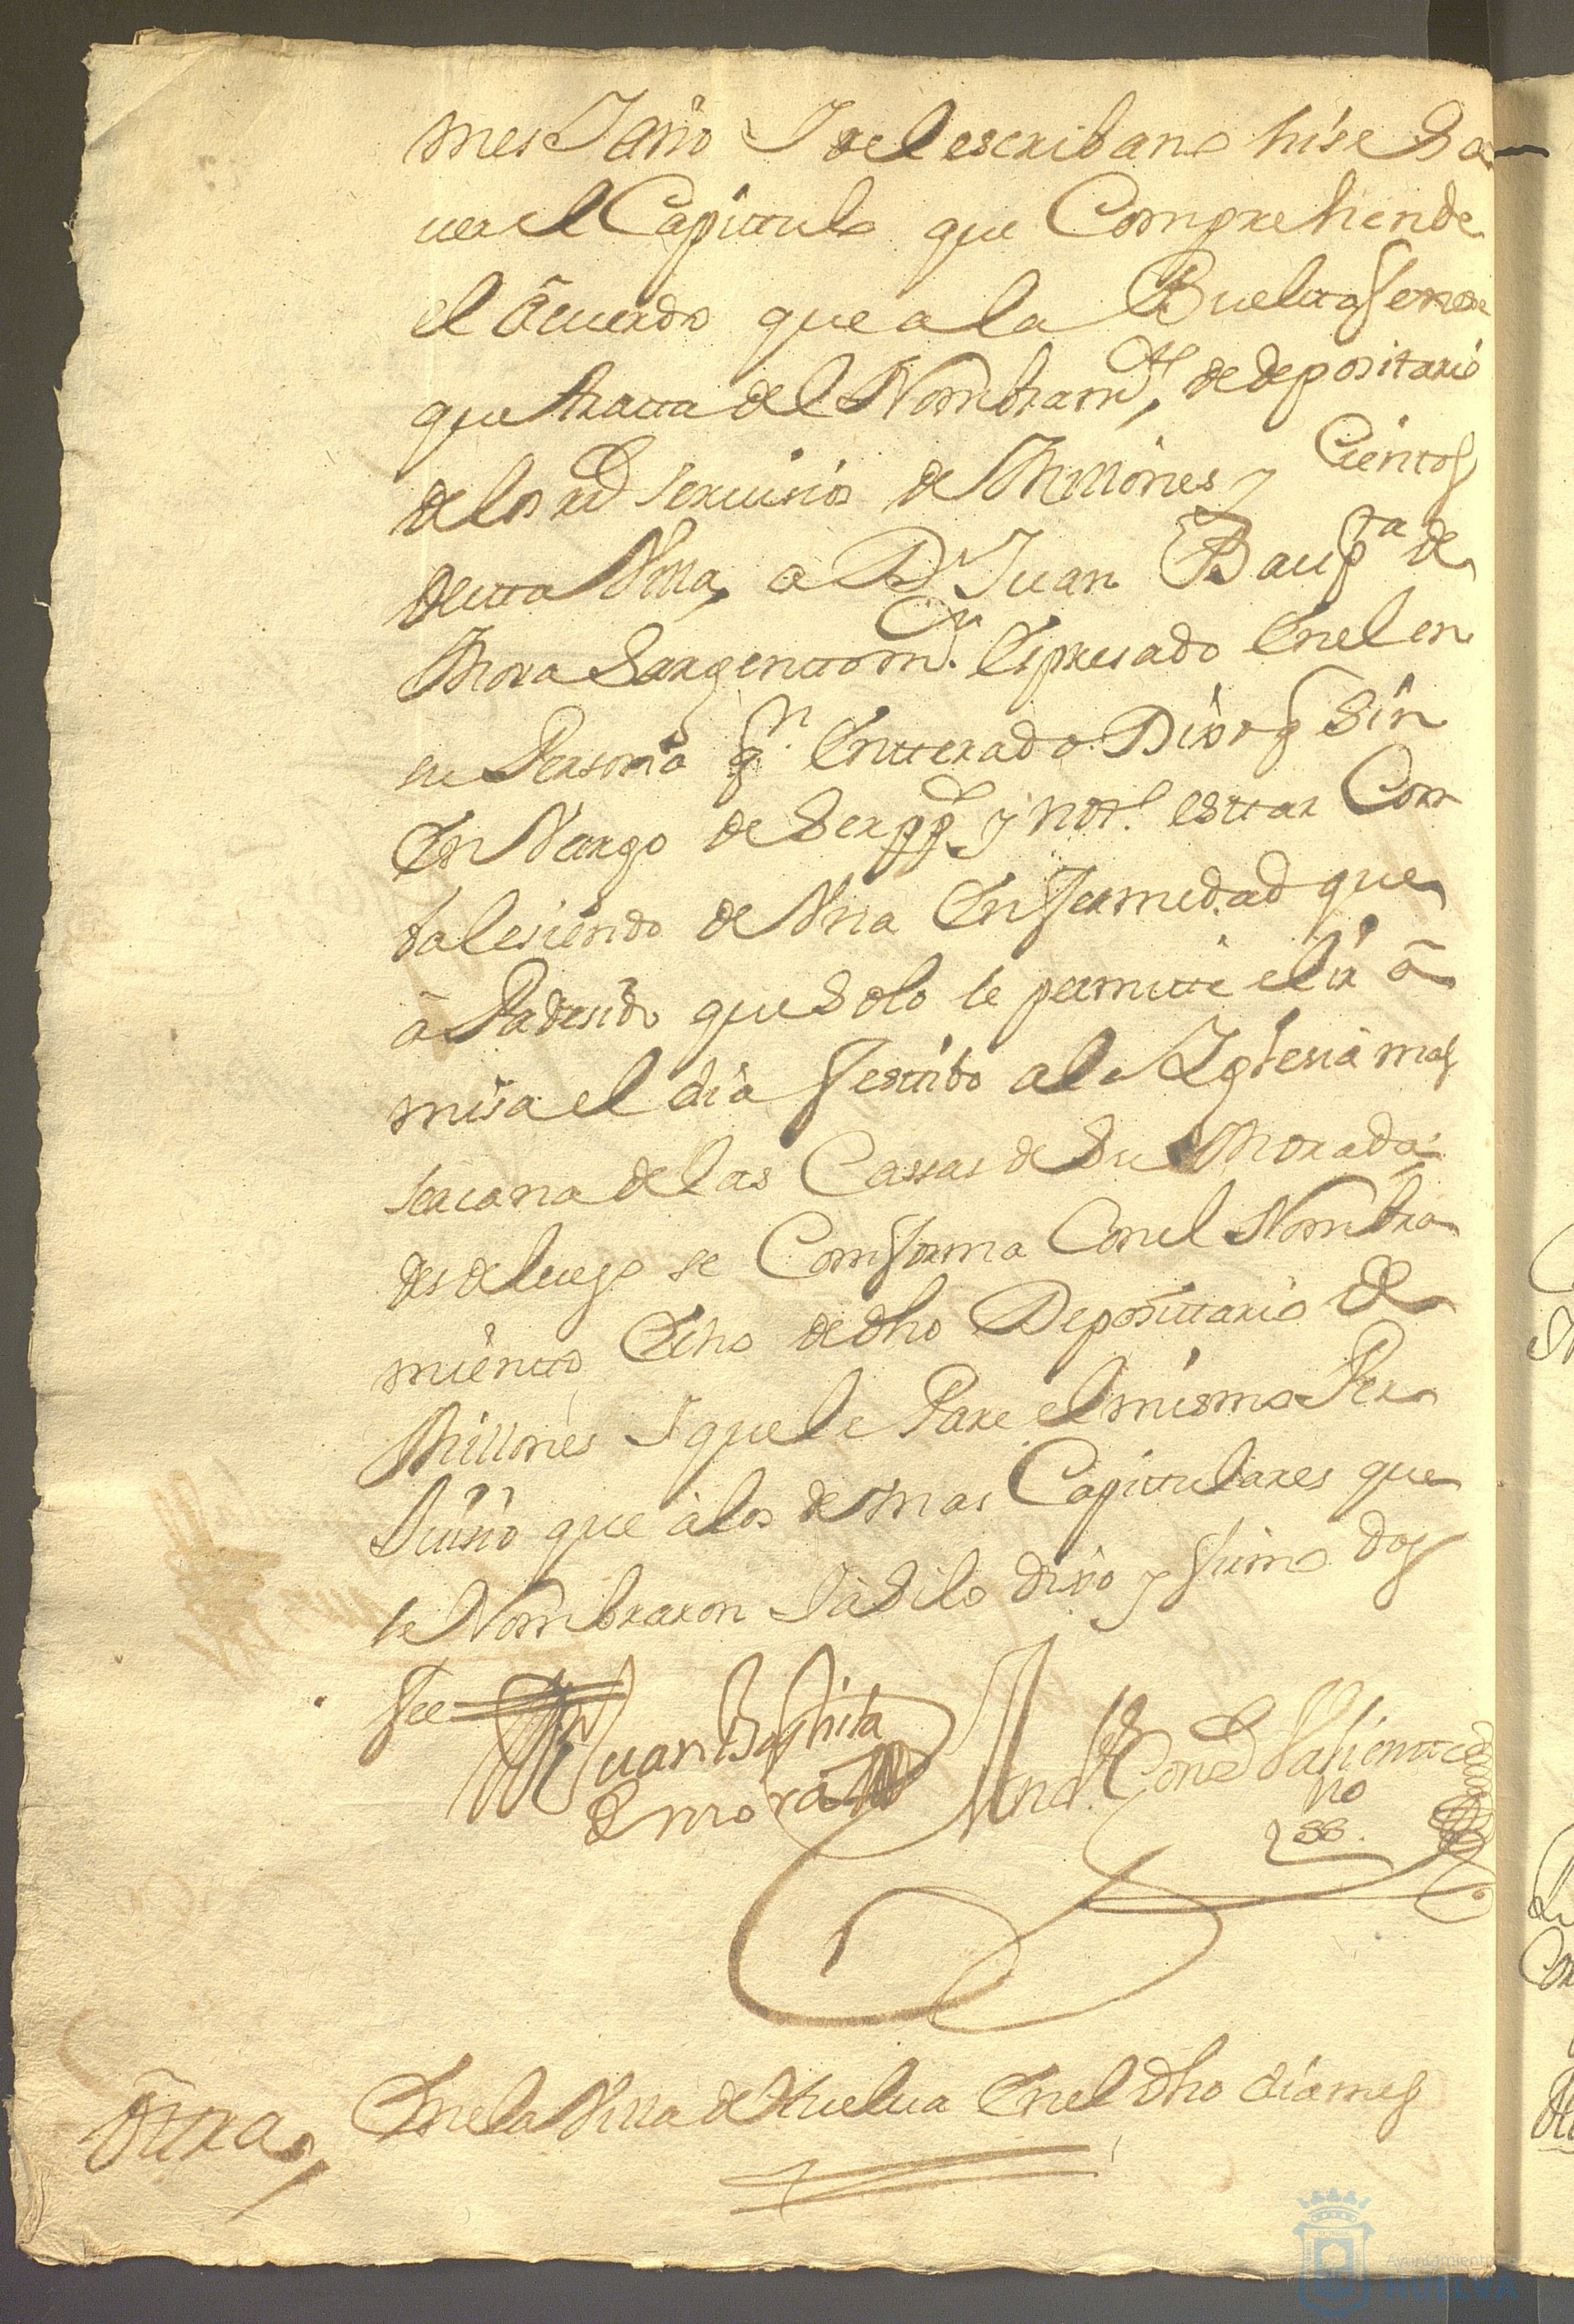 mes Y año Yo el escribano hise Sa
uer el Capitulo que Comprehende
el Acuerdo que a la Buelta
que tratta de el Nombram.to de depositario
de los rs. seruisios de Millones y Cientos
de esta Villa, a Dn Juan Baupta de
Mora Sargentto mr. Espresado En el en
su Persona qn. Entterado Dixo q Sin
En Vargo de Ser ppco y nots. esttar Com
balesiendo de Vna Enfermedad que
a Padesido que Solo le permitte el ir a
misa el dia festibo a la Yglesia mas
sercana de las Cassas de Su Morada
desde luego se Comforma Con el Nombra
mientto Echo de dho Deposittario de
Millones Y que le Pare el mismo Per
Juisio que a los demas Capitulares que
le Nombraron Y asi lo dixo y firmo doy
fee
Juan Baphtita
de mora
Valientte
no
Ottra,
En la Villa de Huelua En el dho dia mes
Ayuntamiento de
HUELVA